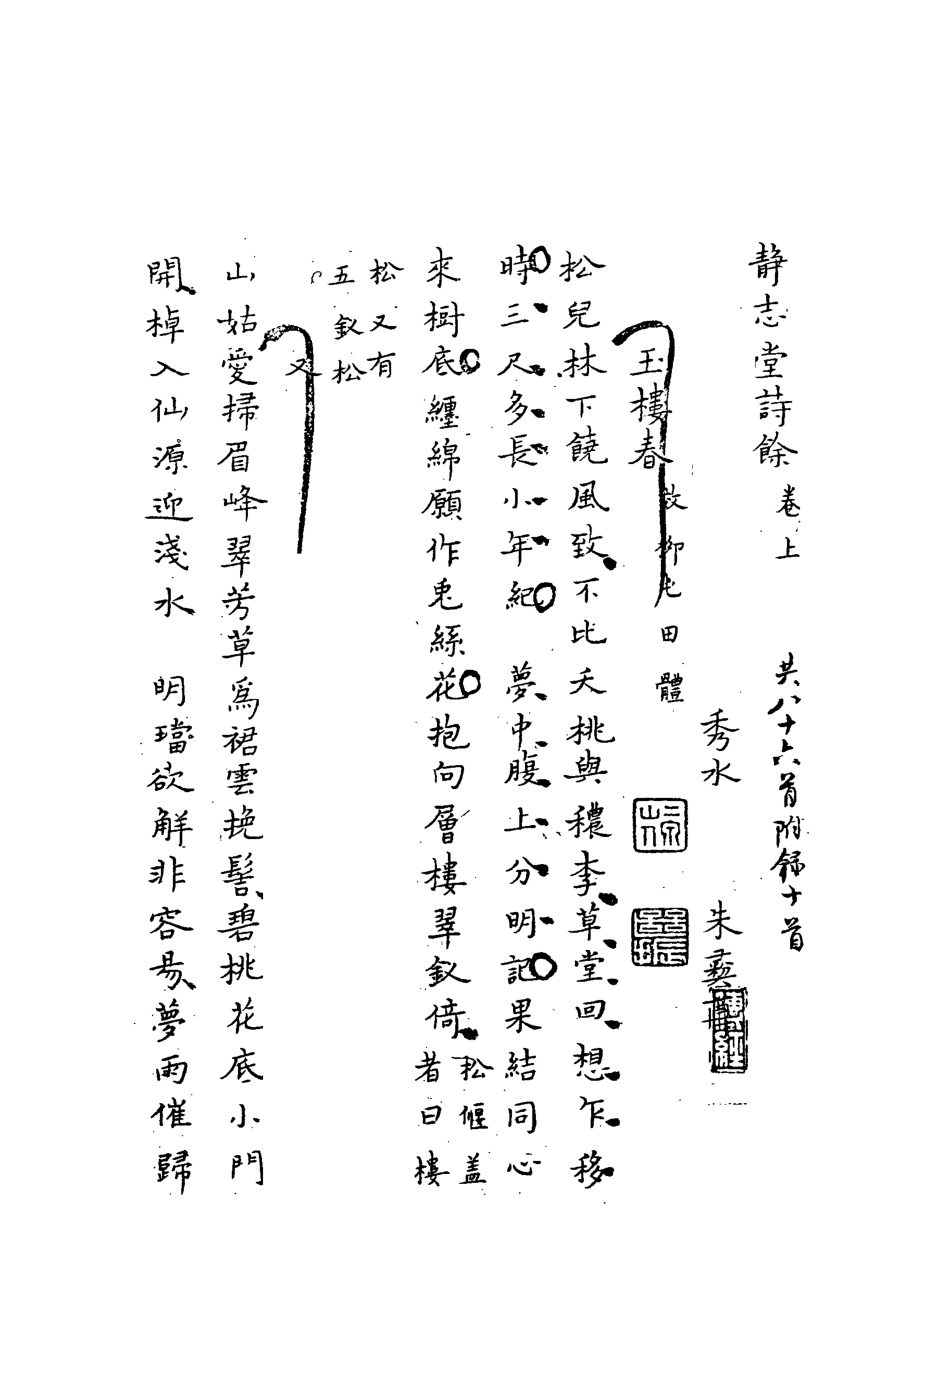 靜志堂詩餘 卷上 共八十六首附錄十首
秀水 朱彝尊
玉樓春 效柳屯田體
松兒林下饒風致不比夭桃與穠李草堂回想乍移
時三尺多長小年紀 夢中腹上分明記果結同心
來樹底纏綿願作兎絲花抱向層樓翠釵倚 松偃盖
者曰樓
松又有
五釵松
又
山姑愛掃眉峰翠芳草爲裙雲挽髻碧桃花底小門
開棹入仙源迎淺水 明璫欲解非容易夢雨催歸